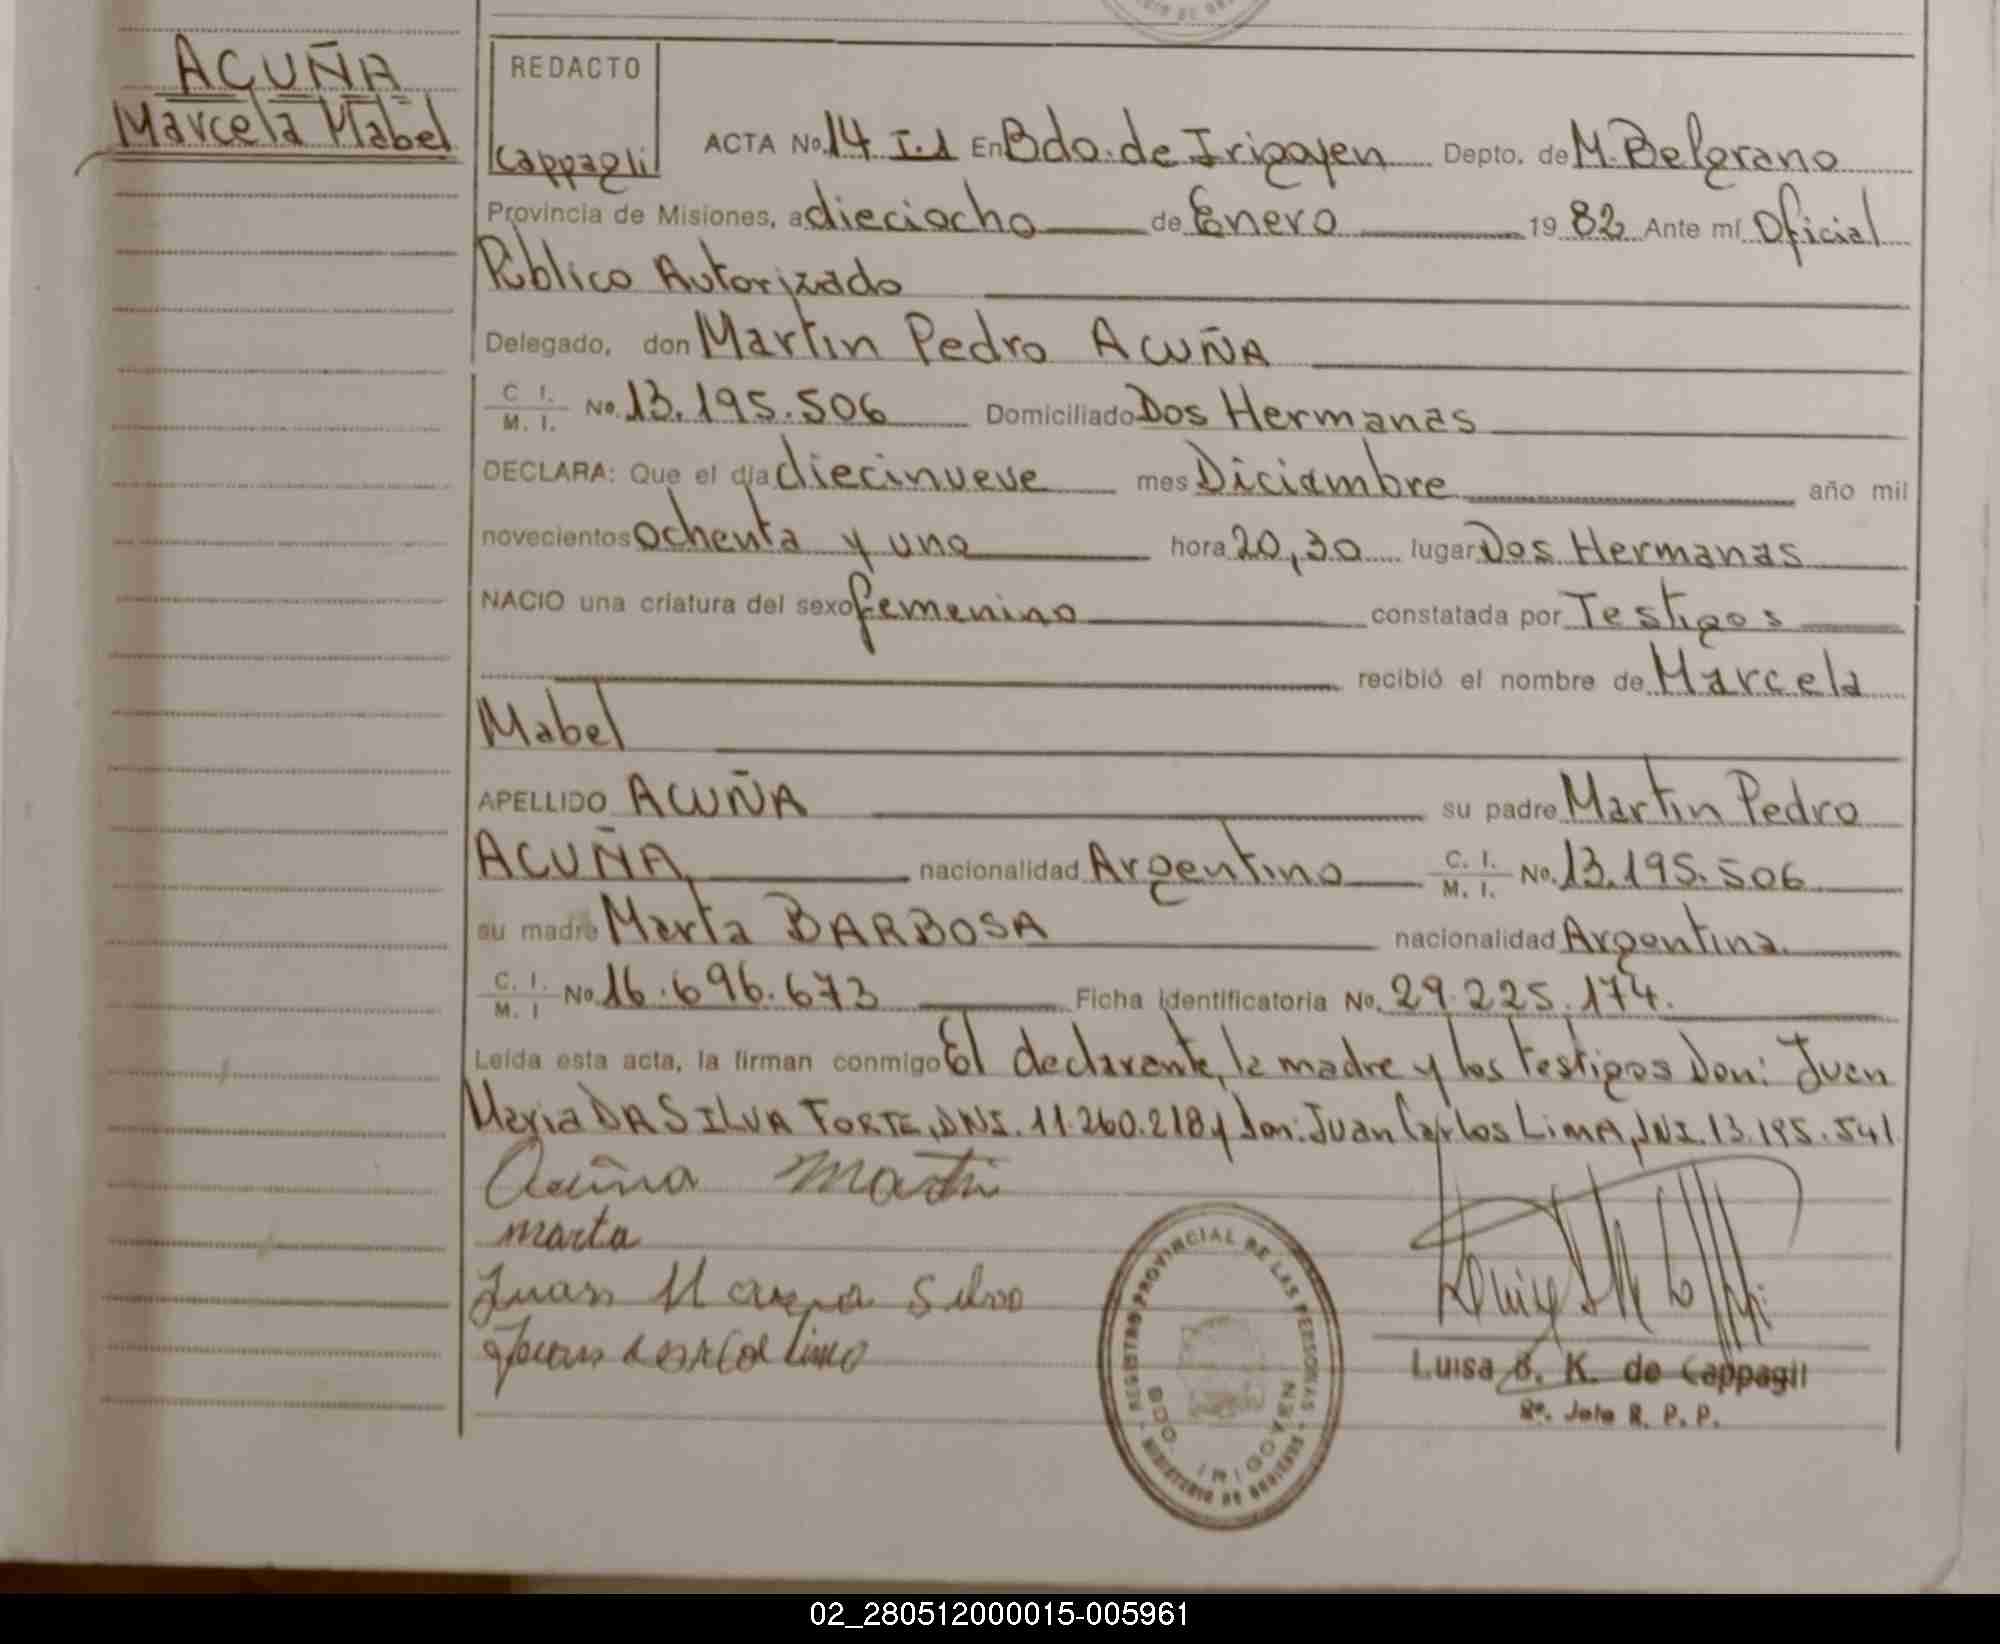 ACUÑA
Marcela Mabel
REDACTO
Cappagli
ACTA No. 14 T.1 En Bdo. de Irigoyen Depto. de M. Belgrano
Provincia de Misiones, a dieciocho de Enero 1982 Ante mí Oficial
Público Autorizado
Delegado, don Martin Pedro ACUÑA
C. I. / M. I. No. 13.195.506 Domiciliado Dos Hermanas
DECLARA: Que el día diecinueve mes Diciembre año mil
novecientos ochenta y uno hora 20,30 lugar Dos Hermanas
NACIO una criatura del sexo femenino constatada por Testigos
recibió el nombre de Marcela
Mabel
APELLIDO ACUÑA su padre Martin Pedro
ACUÑA nacionalidad Argentino C. I. / M. I. No. 13.195.506
su madre Marta BARBOSA nacionalidad Argentina
C. I. / M. I No. 16.696.673 Ficha Identificatoria No. 29.225.174.
Leída esta acta, la firman conmigo El declarante, la madre y los testigos Don: Juan
Maria DA SILVA FORTE, DNI. 11.260.218 y Don: Juan Carlos LIMA, DNI. 13.195.541
Acuña Martin
marta
Juan Silva
Juan Lima
REGISTRO PROVINCIAL DE LAS PERSONAS
BDO. IRIGOYEN
MINISTERIO DE GOBIERNO
Luisa B. K. de Cappagli
R. P. P.
02_280512000015-005961